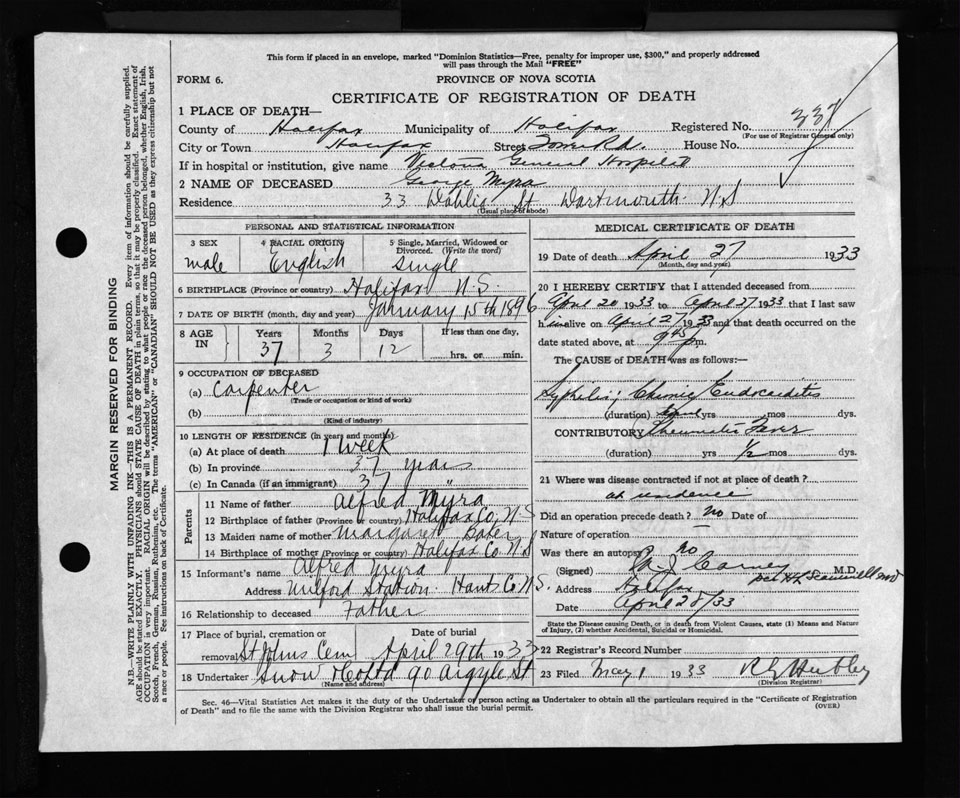 This form if placed in an envelope, marked "Dominion Statistics—Free, penalty for improper use, $300," and properly addressed
will pass through the Mail "FREE"
FORM 6.
PROVINCE OF NOVA SCOTIA
CERTIFICATE OF REGISTRATION OF DEATH
1 PLACE OF DEATH—
County of Halifax Municipality of Halifax Registered No. 337
(For use of Registrar General only)
City or Town Halifax Street Tower Rd. House No.
If in hospital or institution, give name Victoria General Hospital
2 NAME OF DECEASED George Myra
Residence 33 Dahlia St Dartmouth N.S
(Usual place of abode)
PERSONAL AND STATISTICAL INFORMATION
3 SEX 4 RACIAL ORIGIN 5 Single, Married, Widowed or Divorced. (Write the word)
male English single
6 BIRTHPLACE (Province or country) Halifax N.S.
7 DATE OF BIRTH (month, day and year) January 15th 1896
8 AGE IN Years Months Days If less than one day,
37 3 12 hrs. or min.
9 OCCUPATION OF DECEASED
(a) Carpenter
(Trade or occupation or kind of work)
(b)
(Kind of industry)
10 LENGTH OF RESIDENCE (in years and months)
(a) At place of death 1 week
(b) In province 37 years
(c) In Canada (if an immigrant) 37 "
Parents
11 Name of father Alfred Myra
12 Birthplace of father (Province or country) Halifax Co, N.S
13 Maiden name of mother Margaret Baker
14 Birthplace of mother (Province or country) Halifax Co N.S
15 Informant's name Alfred Myra
Address Milford Station Hants Co N.S.
16 Relationship to deceased Father
17 Place of burial, cremation or removal St Johns Cem Date of burial April 29th 1933
18 Undertaker Snow & Co Ltd 90 Argyle St
(Name and address)
MEDICAL CERTIFICATE OF DEATH
19 Date of death April 27 1933
(Month, day and year)
20 I HEREBY CERTIFY that I attended deceased from
April 20 1933 to April 27 1933 that I last saw
him alive on April 27 1933 and that death occurred on the
date stated above, at 9.45 p.m.
The CAUSE of DEATH was as follows:—
Syphilis; Chronic Endocarditis
(duration) yrs mos dys.
CONTRIBUTORY Rheumatic Fever
(duration) yrs 1/2 mos dys.
21 Where was disease contracted if not at place of death?
at residence
Did an operation precede death? no Date of
Nature of operation
Was there an autopsy no
(Signed) M.D.
Address Halifax
Date April 28/33
State the Disease causing Death, or in death from Violent Causes, state (1) Means and Nature
of Injury, (2) whether Accidental, Suicidal or Homicidal.
22 Registrar's Record Number
23 Filed May 1 1933
(Division Registrar)
Sec. 46—Vital Statistics Act makes it the duty of the Undertaker or person acting as Undertaker to obtain all the particulars required in the "Certificate of Registration
of Death" and to file the same with the Division Registrar who shall issue the burial permit.
(OVER)
MARGIN RESERVED FOR BINDING
N.B.—WRITE PLAINLY WITH UNFADING INK—THIS IS A PERMANENT RECORD. Every item of information should be carefully supplied.
AGE should be stated EXACTLY. PHYSICIANS should STATE CAUSE OF DEATH in plain terms, so that it may be properly classified. Exact statement of
OCCUPATION is very important. RACIAL ORIGIN will be described by stating to what people or race the deceased person belonged, whether English, Irish,
Scotch, French, German, Russian, Ruthenian, etc. The terms "AMERICAN" or "CANADIAN" SHOULD NOT BE USED as they express citizenship but not
a race or people. See instructions on back of Certificate.